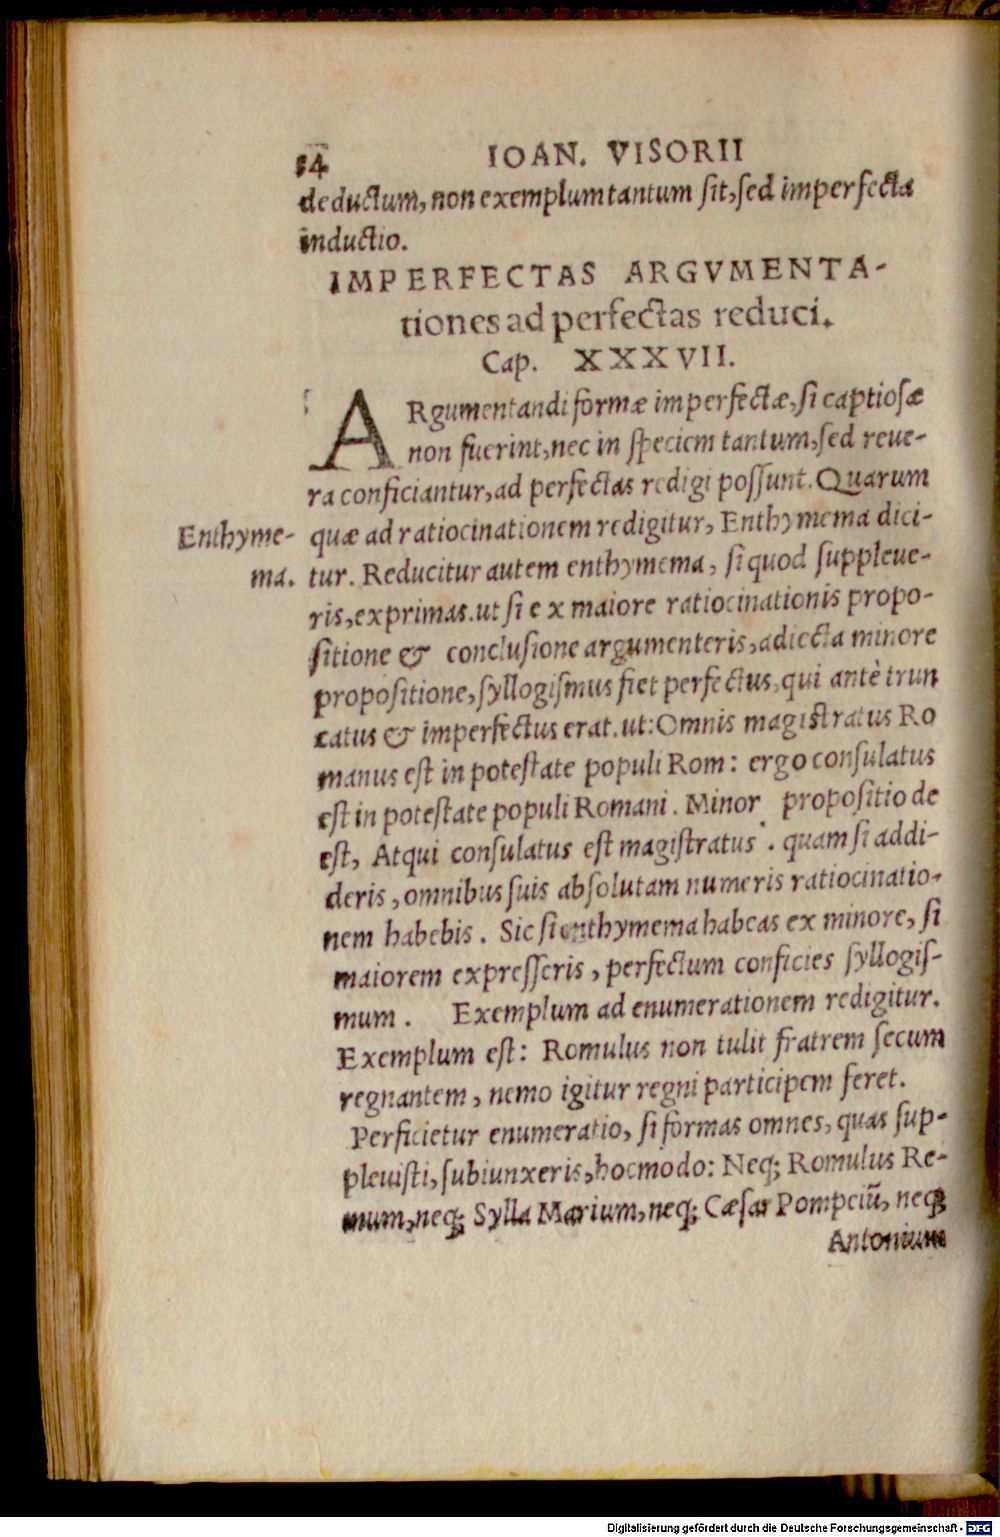 54 IOAN. VISORII
deductum, non exemplum tantum sit, sed imperfecta
inductio.
IMPERFECTAS ARGVMENTA-
tiones ad perfectas reduci.
Cap. XXXVII.
ARgumentandi formæ imperfectæ, si captiosæ
non fuerint, nec in speciem tantum, sed reue-
ra conficiantur, ad perfectas redigi possunt. Quarum
Enthyme- quæ ad ratiocinationem redigitur, Enthymema dici-
ma. tur. Reducitur autem enthymema, si quod suppleue-
ris, exprimas. ut si ex maiore ratiocinationis propo-
sitione & conclusione argumenteris, adiecta minore
propositione, syllogismus fiet perfectus, qui antè trun
catus & imperfectus erat. ut: Omnis magistratus Ro
manus est in potestate populi Rom: ergo consulatus
est in potestate populi Romani. Minor propositio de
est, Atqui consulatus est magistratus. quam si addi-
deris, omnibus suis absolutam numeris ratiocinatio-
nem habebis. Sic si enthymema habeas ex minore, si
maiorem expresseris, perfectum conficies syllogis-
mum. Exemplum ad enumerationem redigitur.
Exemplum est: Romulus non tulit fratrem secum
regnantem, nemo igitur regni participem feret.
Perficietur enumeratio, si formas omnes, quas sup-
pleuisti, subiunxeris, hoc modo: Neq; Romulus Re-
mum, neq; Sylla Marium, neq; Cæsar Pompeiũ, neq;
Antonium
Digitalisierung gefördert durch die Deutsche Forschungsgemeinschaft - DFG